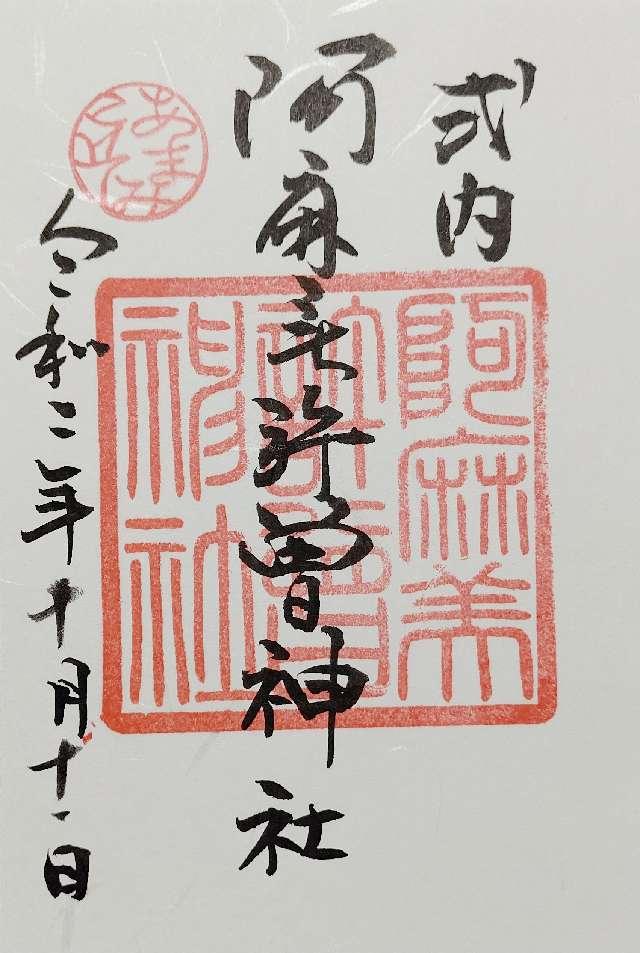 式内
阿麻美許曽神社
令和二年十月十一日
阿麻美
許曽
神社